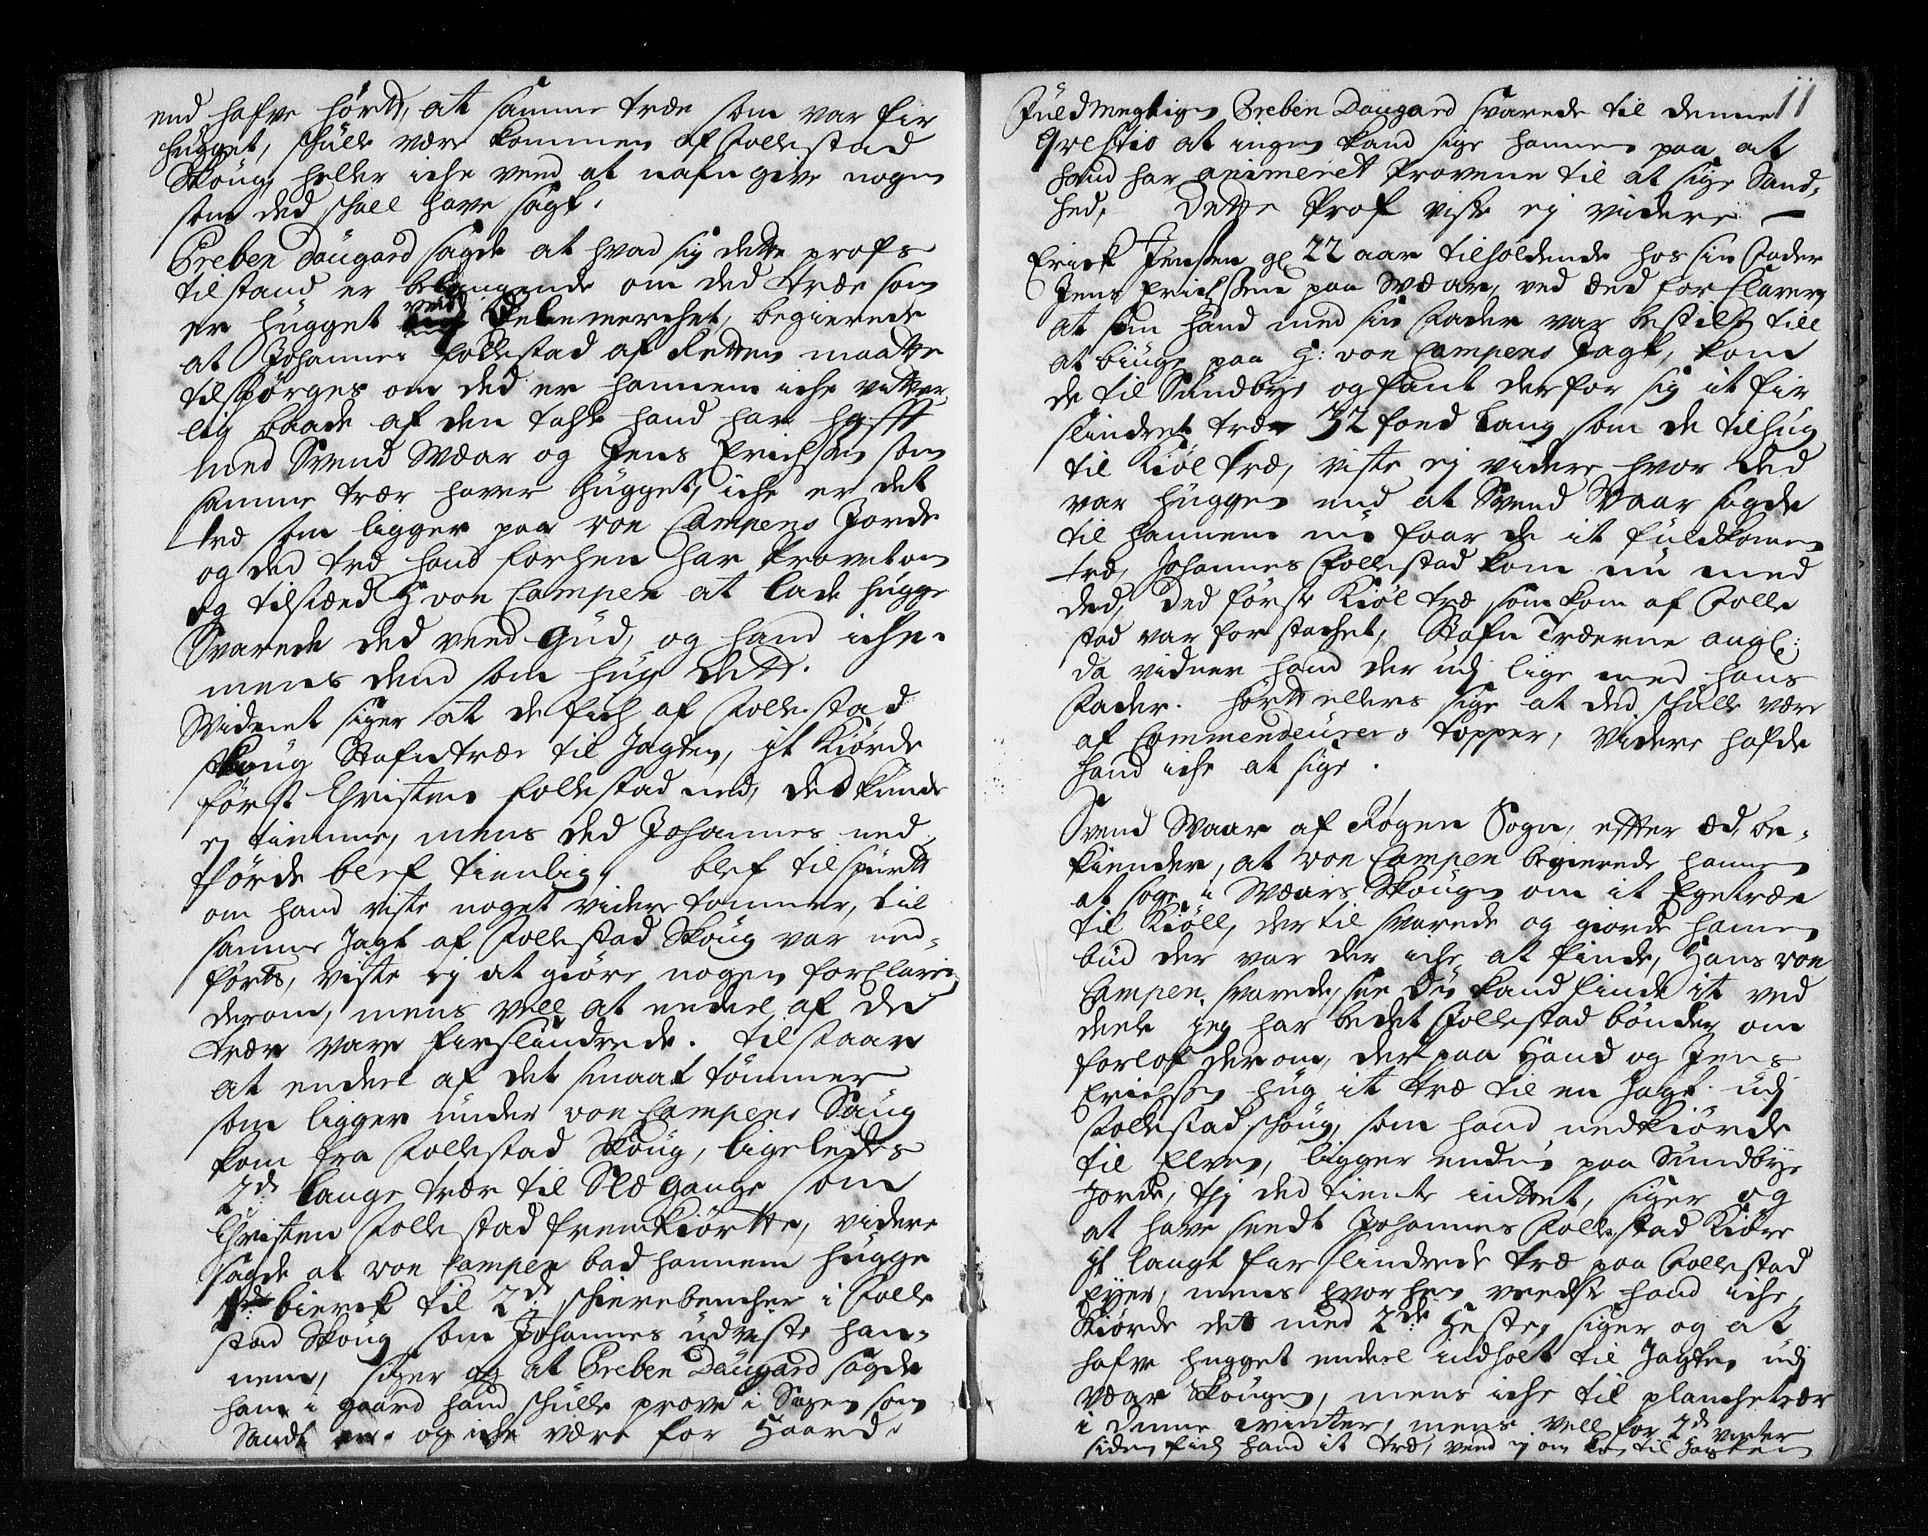 end hafve hørtt, at samme træe som var fir
hugget, schulle være kommen af Follestad
Skoug, heller iche veed at nafngive nogen
som ded schall have sagt.
Preben Daugard sagde at hvad sig dette profs
tilstand er belangende om ded træe som
er hugget ved Delemerchet, begierede
at Johannes Follestad af Retten maatte
tilspørges om ded er hannem iche vitter
lig baade af den tahle hand har hafft
med Svend Wæar og Jens Erichssen som
samme trær haver hugget, iche er det
træ som ligger paa von Campens Jorde
og ded træ hand forhen har
og tilstæed H von Campen at lade hugge
Svarede ded veed Gud, og hand iche
mens dend som hug dett.
Widnet siger at de fich af Follestad
Skoug Stafntræe til Jagten, it kiørde
først Christen Follestad ned, ded kunde
ej tienne, mens ded Johannes ned
førde blef tienlig, blef tilspurtt
om hand viste noget videre tømmer, til
samme Jagt af Follestad Skoug var ned-
førtt, viste ej at giøre nogen forclaring
derom, mens vell at endeel af de
trær vare firslindrede. tilstaar
at endeel af det smaat tømmer
som ligger under von Campens Saug
kom fra Follestad Skoug, ligeledes
2de lange trær til Slæ gange som
Christen Follestad fremkiørtte, videre
sagde at von Campen bad hannem hugge
bierck til 2de schierebencher i Folle
stad Skoug som Johannes udviste han-
nem, siger og at Preben Daugard sagde
ham i gaard hand schulle prove i Sagen som
Sandt er og iche være for Haard.
11
Fuldmegtigen Preben Daugard svarede til denne
Qvestio at ingen kand sige hannem paa at
hand har animeret Provene til at sige Sand-
hed, Dette Prof viste ej videre —
Erick Jensen gl 22 aar tilholdende hos sin Fader
Jens Erichssen paa Wæar, ved æd forclarer
at som hand med sin Fader var bestilt till
at biuge paa H: von Campens Jagt, kom
de til Sundbye og fant der for sig it fir
slindret træe 32 foed lang som de tilhug
til Kiøl træ, viste ej videre hvor ded
var huggen end at Svend Waar sagde
til hannem nu faar de it fuldkomen
træ, Johannes Follestad kom nu med
ded, ded først Kiøl træ som kom af Folle
stad var for stachet, Stafn Træerne angl:
da vidner hand der udj lige med hans
Fader. hørtt ellers sige at ded schulle være
af Commendeurens topper, videre hafde
hand iche at sige.
Svend Waar af Røgen Sogn, effter æd, be-
kiender, at von Campen begierede hannem
at søge i Wæars Skougen om it Egetræe
til Kiøll, dertil svarede og giorde hannem
bud der var der iche at finde, Hans von
Campen svarede, see Du kand finde it ved
deele jeg har bedet Follestad bønder om
forlof derom, derpaa Hand og Jens
Erichssen hug it træ til en Jagt udj
Follestad schoug, som hand nedkiørde
til Elven, ligger endnu paa Sundbye
Jorde, thj ded tiente inttet, siger og
at have seedt Johannes Follestad Kiøre
it langt firslindrede træ paa Follestad
Eyer, mens hvorhen veedst hand iche,
Kiørde det med 2de Heste, siger og at
hafve hugget endeel indholt til Jagten udj
Wæar Skougen, mens iche til planchetrær
i denne winter, mens vell for 2de vinter
siden fich hand it træ, veed ej om kom til Jagten